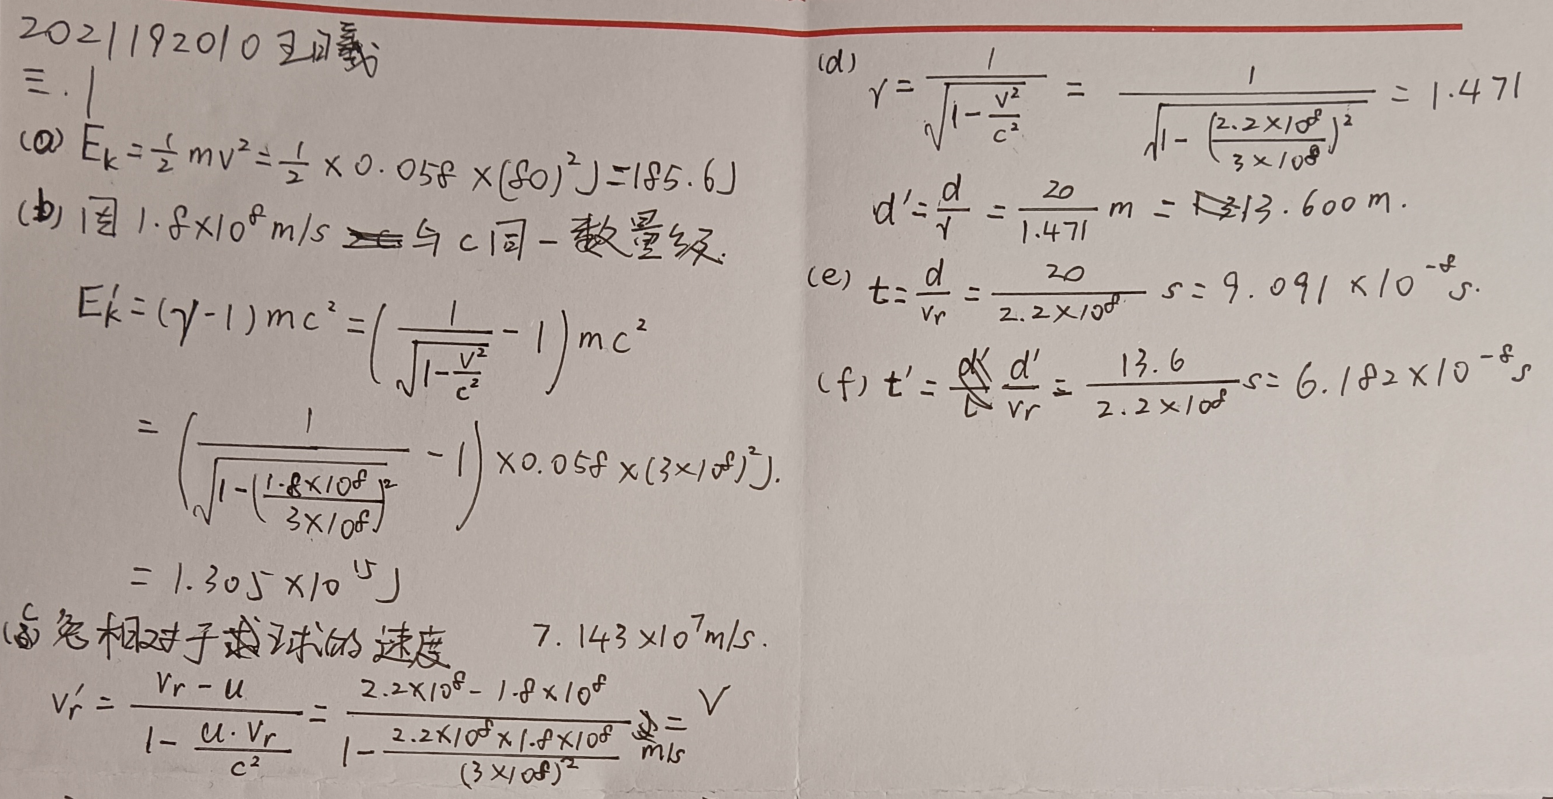 2021192010 王曰義
三.1
(a) E_k = 1/2 mv² = 1/2 × 0.058 × (80)² J = 185.6J
(b) 因 1.8×10⁸ m/s 与 c 同一数量级.
E_k' = (γ-1)mc² = (1/√(1-v²/c²) - 1) mc²
= (1/√(1-(1.8×10⁸/3×10⁸)²) - 1) × 0.058 × (3×10⁸)² J.
= 1.305 ×10¹⁵ J
(c) 兔相对于球的速度 7.143×10⁷ m/s.
v_r' = (v_r - u)/(1 - u·v_r/c²) = (2.2×10⁸ - 1.8×10⁸)/(1 - 2.2×10⁸×1.8×10⁸/(3×10⁸)²) m/s =
(d) γ = 1/√(1-v²/c²) = 1/√(1-(2.2×10⁸/3×10⁸)²) = 1.471
d' = d/γ = 20/1.471 m = 13.600m.
(e) t = d/v_r = 20/2.2×10⁸ s = 9.091 ×10⁻⁸ s.
(f) t' = d'/v_r = 13.6/2.2×10⁸ s = 6.182×10⁻⁸ s